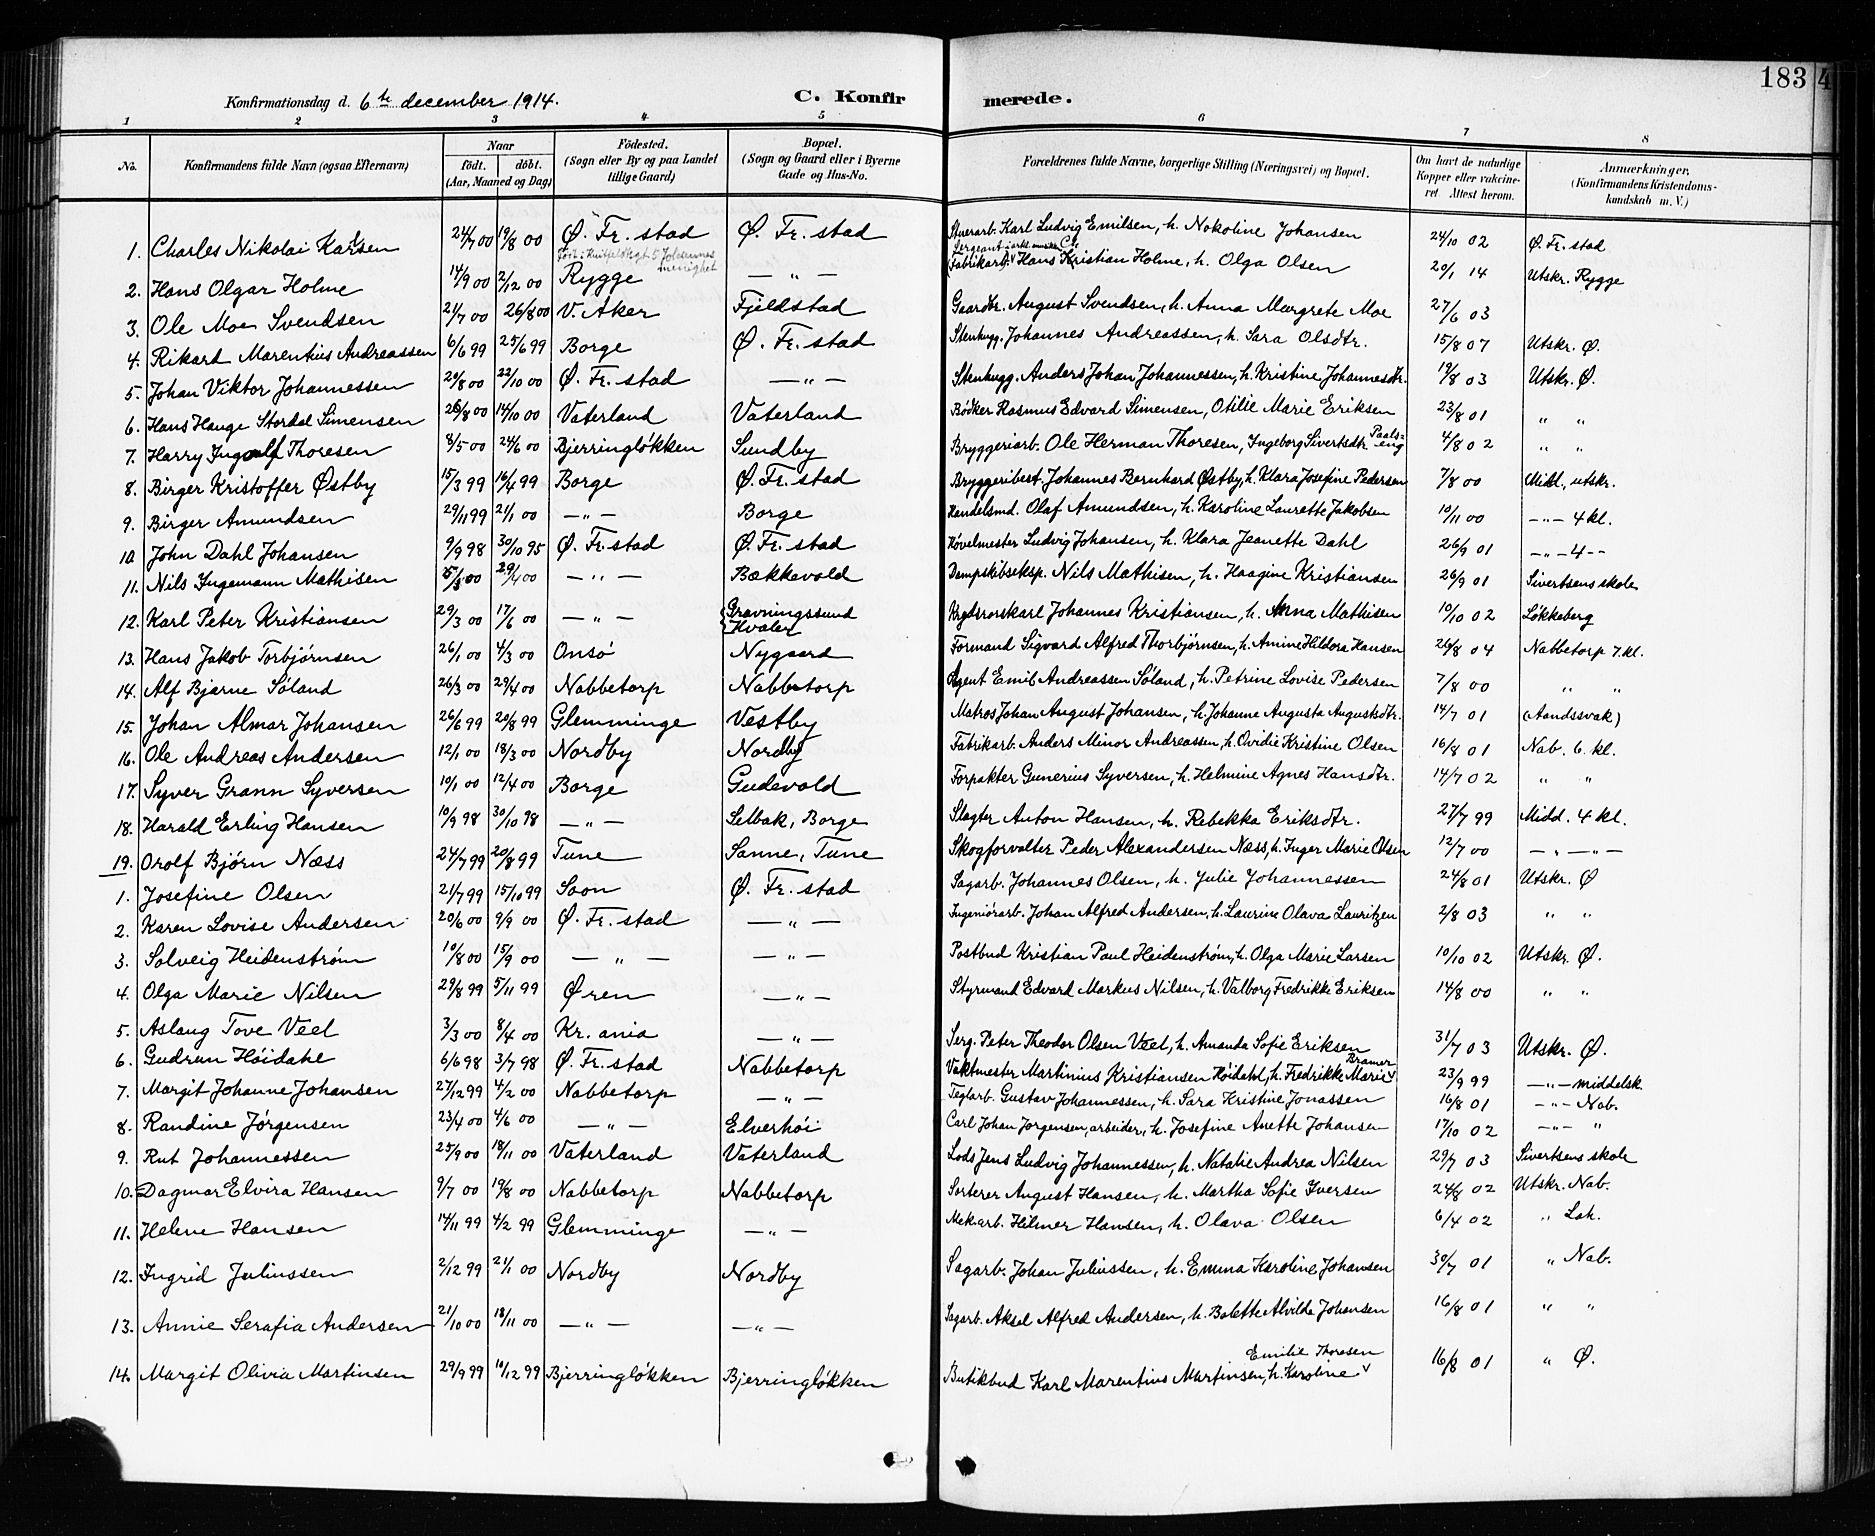 183
Konfirmationsdag d. 6te december 1914. C. Konfirmerede.
1 2 3 4 5 6 7 8
No. Konfirmandens fulde Navn (ogsaa Efternavn) Naar født. døbt. (Aar, Maaned og Dag) Födested. (Sogn eller By og paa Landet tillige Gaard) Bopæl. (Sogn og Gaard eller i Byerne Gade og Hus-No. Forældrenes fulde Navne, borgerlige Stilling (Næringsvei) og Bopæl. Om havt de naturlige Kopper eller vakcineret. Attest herom. Anmerkninger. (Konfirmandens Kristendomskundskab m. V.)
1. Charles Nikolai Karlsen 24/7 00 19/8 00 Ø. Fr. stad Ø. Fr. stad Karl Ludvig Emilsen, h. Nokoline Johansen 24/10 02 Ø. Fr. stad
2. Hans Olgar Holme 14/9 00 2/12 00 Rygge — " — Fabrikarb. Hans Kristian Holme, h. Olga Olsen 20/1 14 Utskr. Rygge
3. Ole Moe Svendsen 21/7 00 26/8 00 V. Aker Fjeldstad Gaardbr. August Svendsen, h. Anna Margrete Moe 27/6 03
4. Rikard Marentius Andreassen 6/6 99 25/6 99 Borge Ø. Fr. stad Stenhugg. Johannes Andreassen, h. Sara Olsdtr. 15/8 07 Utskr. Ø.
5. Johan Viktor Johannessen 20/8 00 22/10 00 Ø. Fr. stad — " — Stenhugg. Anders Johan Johannessen, h. Kristine Johannesdtr. 19/8 03 Utskr. Ø.
6. Hans Hauge Stordal Simensen 26/8 00 14/10 00 Vaterland Vaterland Bødker Rasmus Edvard Simensen, Otilie Marie Eriksen 23/8 01 " "
7. Harry Ingolf Thoresen 8/5 00 24/6 00 Bjerringløkken Sundby Bryggeriarb. Ole Herman Thoresen, Ingeborg Sivertsdtr. Paalseng 4/8 02 " "
8. Birger Kristoffer Østby 15/3 99 16/4 99 Borge Ø. Fr. stad Bryggeribest. Johannes Bernhard Østby, h. Klara Josefine Pedersen 7/8 00 Midl., utskr.
9. Birger Amundsen 29/11 99 21/1 00 — " — Borge Handelsmd. Olaf Amundsen, h. Karoline Laurette Jakobsen 10/11 00 — " — 4 kl.
10. John Dahl Johansen 9/9 98 30/10 95 Ø. Fr. stad Ø. Fr. stad Høvelmester Ludvig Johansen, h. Klara Jeanette Dahl 26/9 01 — " — 4 - -
11. Nils Ingemann Mathisen 5/3 00 29/4 00 — " — Bækkevold Dampskibseksp. Nils Mathisen, h. Haagine Kristiansen 26/9 01 Sivertsens skole
12. Karl Peter Kristiansen 29/3 00 17/6 00 — " — Gravningssund Hvaler Johannes Kristiansen, h. Anna Mathisen 10/10 02 Løkkeberg
13. Hans Jakob Torbjørnsen 26/1 00 4/3 00 Onsø Nygaard Formand Sigvard Alfred Thorbjørnsen, h. Amine Hildora Hansen 26/8 04 Nabbetorp 7. kl.
14. Alf Bjarne Søland 26/3 00 29/4 00 Nabbetorp Nabbetorp Agent Emil Andreassen Søland, h. Petrine Lovise Pedersen 7/8 00 " "
15. Johan Almar Johansen 26/6 99 20/8 99 Glemminge Vestby Matros Johan August Johansen, h. Johanne Augusta Augustsdtr. 14/7 01 (Aandssvak)
16. Ole Andreas Andersen 12/1 00 18/3 00 Nordby Nordby Fabrikarb. Anders Minor Andreassen, h. Ovidie Kristine Olsen 16/8 01 Nab. 6. kl.
17. Syver Grann Syversen 10/1 00 12/4 00 Borge Gudevold Forpakter Gunerius Syversen, h. Helmine Agnes Hansdtr. 14/7 02 " "
18. Harald Erling Hansen 10/9 98 30/10 98 — " — Selbak, Borge Slagter Anton Hansen, h. Rebekka Eriksdtr. 27/7 99 Midd. 4 kl.
19. Orolf Bjørn Næss 24/7 99 20/8 99 Tune Sanne, Tune Skogforvalter Peder Alexandersen Næss, h. Inger Marie Olsen 12/7 00 — " — " —
1. Josefine Olsen 21/7 99 15/10 99 Soon Ø. Fr. stad Sagarb. Johannes Olsen, h. Julie Johannessen 24/8 01 Utskr. Ø
2. Karen Lovise Andersen 20/6 00 9/9 00 Ø. Fr. stad — " — Ingeniörarb. Johan Alfred Andersen, h. Laurine Olava Lauritzen 2/8 03 " "
3. Solveig Heidenstrøm 10/8 00 15/9 00 — " — — " — Postbud Kristian Paul Heidenstrøm, h. Olga Marie Larsen 10/10 02 Utskr. Ø.
4. Olga Marie Nilsen 29/8 99 5/11 99 Øren — " — Styrmand Edvard Markus Nilsen, h. Valborg Fredrikke Eriksen 14/8 00 " "
5. Aslaug Tove Veel 3/3 00 8/4 00 Kr. ania — " — Serg. Peter Theodor Olsen Veel, h. Amanda Sofie Eriksen 31/7 03 Utskr. Ø.
6. Gudrun Høidahl 6/6 98 3/7 98 Ø. Fr. stad Nabbetorp Vaktmester Martinius Kristiansen Høidahl, h. Fredrikke Marie Bramer 23/9 99 — " — middelsk.
7. Margit Johanne Johansen 27/12 99 4/2 00 Nabbetorp — " — Teglarb. Gustav Johannessen, h. Sara Kristine Jonassen 16/8 01 — " — Nab.
8. Randine Jørgensen 23/4 00 4/6 00 — " — Elverhøi Carl Johan Jørgensen, arbeider, h. Josefine Anette Johansen 17/10 02 — " — "
9. Rut Johannessen 25/9 00 18/11 00 Vaterland Vaterland Lods Jens Ludvig Johannessen, h. Natalie Andrea Nilsen 29/7 03 Sivertsens skole
10. Dagmar Elvira Hansen 9/7 00 19/8 00 Nabbetorp Nabbetorp Sorterer August Hansen, h. Martha Sofie Iversen 24/8 02 Utskr. Nab.
11. Helene Hansen 14/11 99 4/2 99 Glemminge — " — Mek.arb. Hilmer Hansen, h. Olava Olsen 6/4 02 "
12. Ingrid Juliussen 2/12 99 21/1 00 Nordby Nordby Sagarb. Johan Juliussen, h. Emma Karoline Johansen 30/7 01 " Nab.
13. Annie Serafia Andersen 21/10 00 18/11 00 — " — — " — Sagarb. Aksel Alfred Andersen, h. Bolette Alvilde Johansen 16/8 01 " "
14. Margit Olivia Martinsen 29/9 99 10/12 99 Bjerringløkken Bjerringløkken Butikbud Karl Marentius Martinsen, h. Karoline Emilie Thoresen 16/8 01 " Ø.